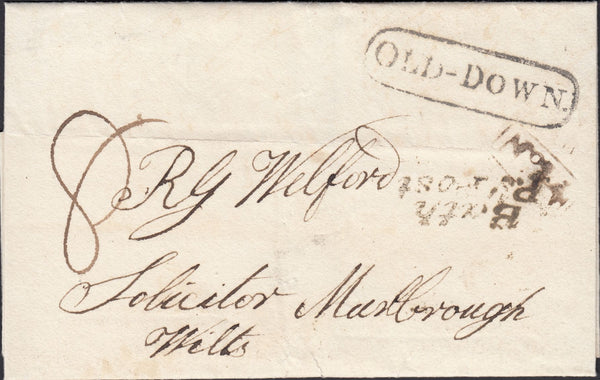 OLD-DOWN.
8 RG Welford
Bath
Py Post
Solicitor Marbrough
Wilts